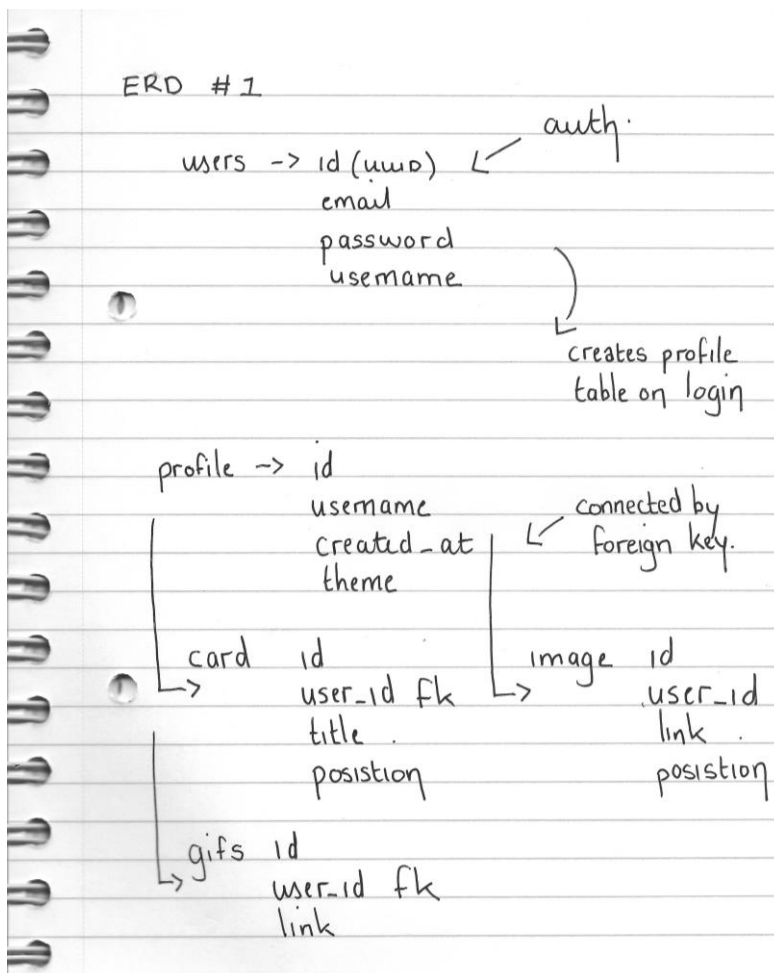 ERD #1
auth.
users -> id (uuid)
email
password
username
creates profile
table on login
profile -> id
username
created_at
theme
connected by
foreign key.
card id
user_id fk
title
posistion
image id
user_id
link
posistion
gifs id
user_id fk
link